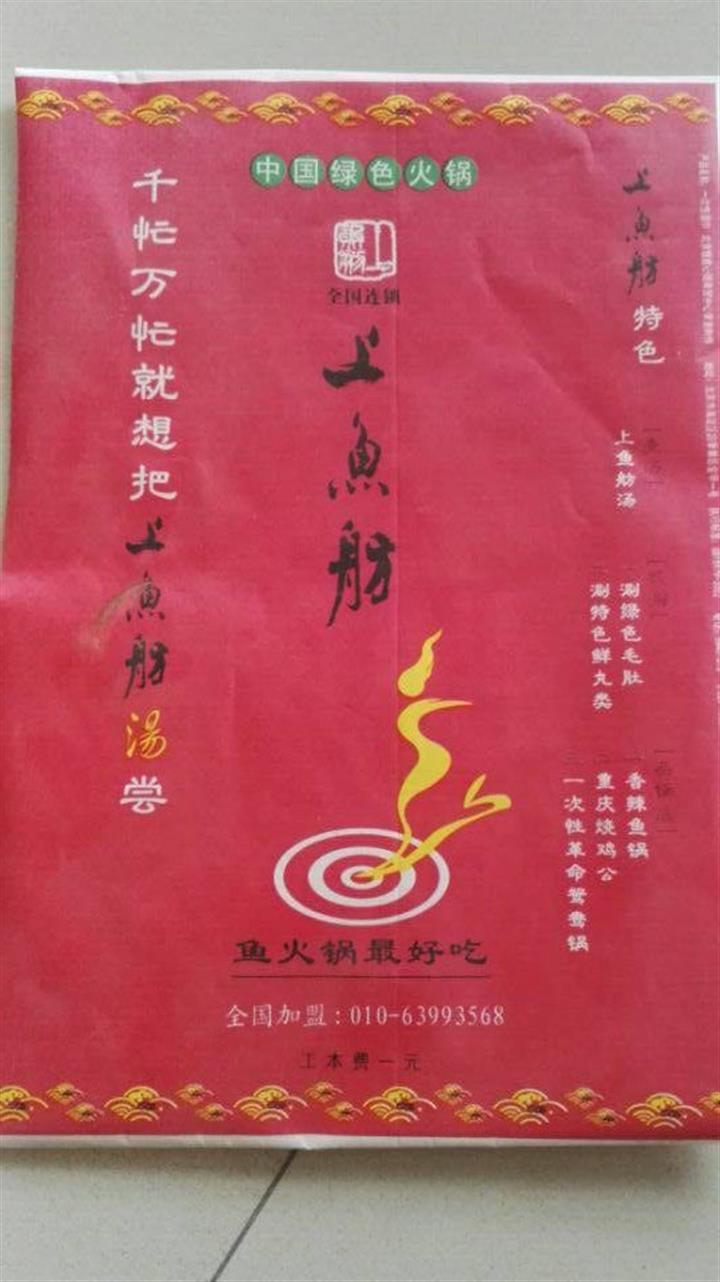 中国绿色火锅
全国连锁
上魚舫
千忙万忙就想把上魚舫湯尝
上魚舫特色
上鱼舫汤
一涮绿色毛肚
二涮特色鲜丸类
一香辣鱼锅
二重庆烧鸡公
三一次性革命鸳鸯锅
鱼火锅最好吃
全国加盟:010-63993568
工本费一元